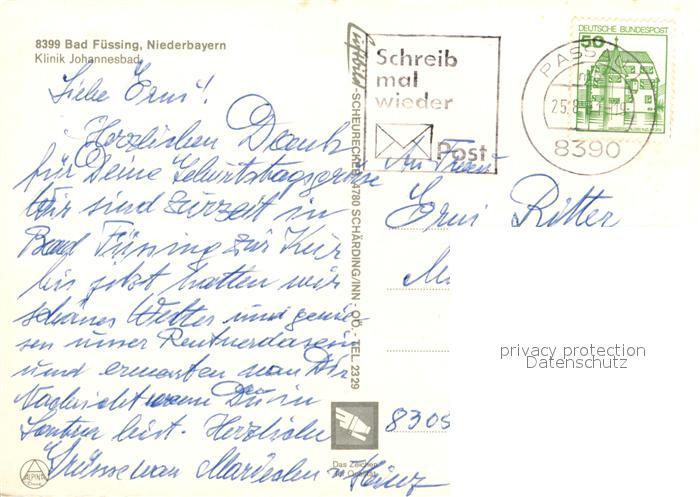 8399 Bad Füssing, Niederbayern
Klinik Johannesbad
Liebe Erni!
Herzlichen Dank
für Deine Geburtstagsgrüsse
Wir sind zurzeit in
Bad Füssing zur Kur
bis jetzt hatten wir
schönes Wetter und genies
sen unser Rentnerdasein
und erwarten von Dir
Nachricht wenn Du in
bist. Herzliche
Grüsse von u. Heinz
Luftbild-SCHEURECKER, 4780 SCHÄRDING/INN - OÖ. - TEL. 2329
ALPINA
Druck
Das Zeichen
für Qualität
Schreib
mal
wieder
Post
DEUTSCHE BUNDESPOST
50
PASSAU
25.8
8390
An Frau
Erni Ritter
8305
privacy protection
Datenschutz